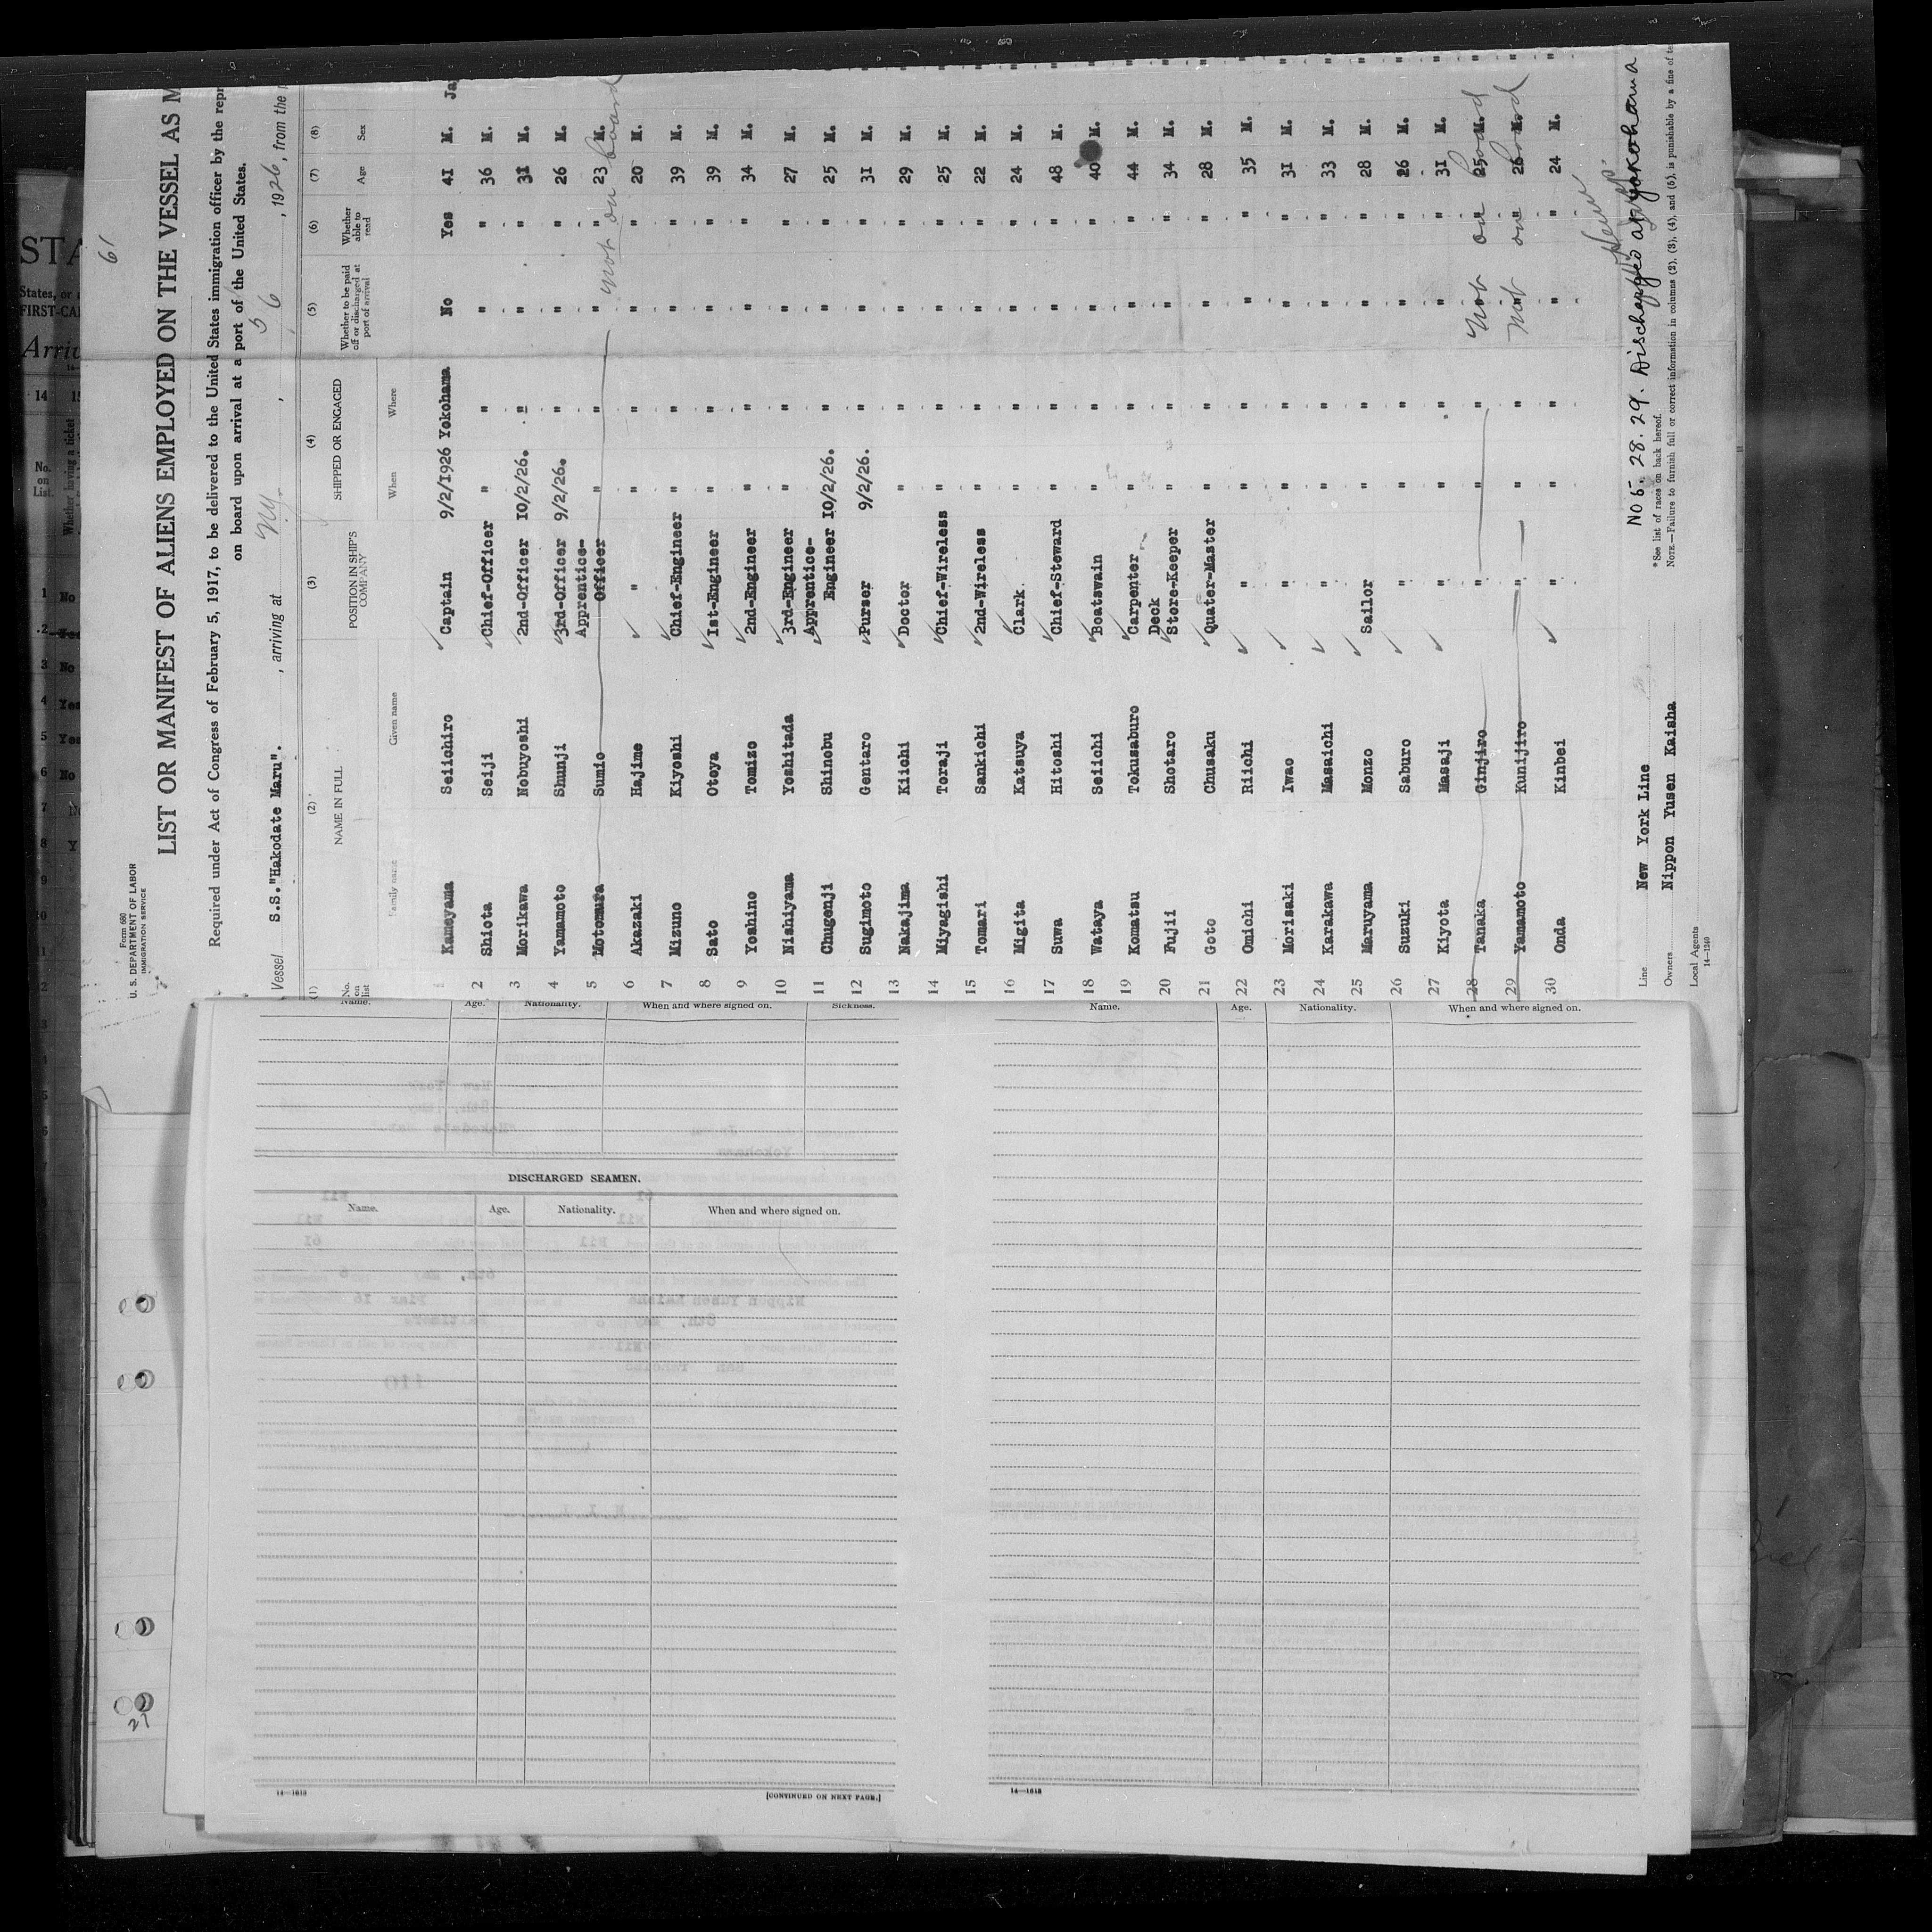 61
Form 680
U. S. DEPARTMENT OF LABOR
IMMIGRATION SERVICE
LIST OR MANIFEST OF ALIENS EMPLOYED ON THE VESSEL AS M
Required under Act of Congress of February 5, 1917, to be delivered to the United States immigration officer by the repr
on board upon arrival at a port of the United States.
Vessel S.S."Hakodate Maru". , arriving at N.Y. , 5 6 , 1926, from the
(1) (2) (3) (4) (5) (6) (7) (8)
No. on list NAME IN FULL POSITION IN SHIP'S COMPANY SHIPPED OR ENGAGED Whether to be paid off or discharged at port of arrival Whether able to read Age Sex
Family name Given name When Where
Kameyama Seiichiro Captain 9/2/1926 Yokohama No Yes 41 M. Ja
2 Shiota Seiji Chief-Officer " " " " 36 M. "
3 Morikawa Nobuyoshi 2nd-Officer 10/2/26. " " " 31 M. "
4 Yamamoto Shunji 3rd-Officer 9/2/26. " " " 26 M. "
5 Motomura Sumio Apprentice-Officer " " " " 23 M. not on board
6 Akazaki Hajime " " " " " 20 M. "
7 Mizuno Kiyoshi Chief-Engineer " " " " 39 M. "
8 Sato Otoya 1st-Engineer " " " " 39 M. "
9 Yoshino Tomizo 2nd-Engineer " " " " 34 M. "
10 Nishiyama Yoshitada 3rd-Engineer " " " " 27 M. "
11 Chugenji Shinobu Apprentice-Engineer 10/2/26. " " " 25 M. "
12 Sugimoto Gentaro Purser 9/2/26. " " " 31 M. "
13 Nakajima Kiichi Doctor " " " " 29 M. "
14 Miyagishi Toraji Chief-Wireless " " " " 25 M. "
15 Tomari Sankichi 2nd-Wireless " " " " 22 M. "
16 Migita Katsuya Clark " " " " 24 M. "
17 Suwa Hitoshi Chief-Steward " " " " 48 M. "
18 Wataya Seiichi Boatswain " " " " 40 M. "
19 Komatsu Tokusaburo Carpenter " " " " 44 M. "
20 Fujii Shotaro Deck Store-Keeper " " " " 34 M. "
21 Goto Chusaku Quater-Master " " " " 28 M. "
22 Omichi Riichi " " " " " 35 M. "
23 Morisaki Iwao " " " " " 31 M. "
24 Karakawa Masaichi " " " " " 33 M. "
25 Maruyama Monzo Sailor " " " " 28 M. "
26 Suzuki Saburo " " " " " 26 M. "
27 Kiyota Masaji " " " " " 31 M. "
28 Tanaka Ginjiro " " " " " 25 M. " Not on board
29 Yamamoto Kunijiro " " " " " 26 M. " not on board
30 Onda Kinbei " " " " " 24 M. "
Line New York Line
Owners Nippon Yusen Kaisha
Local Agents
14—1240
No 5. 28. 29. Discharged at Yokohama
*See list of races on back hereof.
NOTE.—Failure to furnish full or correct information in columns (2), (3), (4), and (5), is punishable by a fine of te
Name. Age. Nationality. When and where signed on. Sickness.
DISCHARGED SEAMEN.
Name. Age. Nationality. When and where signed on.
14—1613
[CONTINUED ON NEXT PAGE.]
Name. Age. Nationality. When and where signed on.
14—1613
STA
States, or
FIRST-CA
14
No. on List.
Whether having a ticket
1 No
2
3 No
4 Yes
5 Yes
6 No
7
8 Y
9
10
11